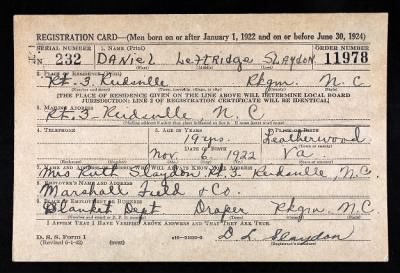 REGISTRATION CARD—(Men born on or after January 1, 1922 and on or before June 30, 1924)
SERIAL NUMBER 1. NAME (Print) ORDER NUMBER
N 232 DANiel Leftridge SLAYDON 11978
(First) (Middle) (Last)
2. PLACE OF RESIDENCE (Print)
Rt. 3 Reidsville Rkgm. N. C.
[THE PLACE OF RESIDENCE GIVEN ON THE LINE ABOVE WILL DETERMINE LOCAL BOARD
JURISDICTION; LINE 2 OF REGISTRATION CERTIFICATE WILL BE IDENTICAL]
3. MAILING ADDRESS
Rt. 3 Reidsville N. C.
[Mailing address if other than place indicated on line 2. If same insert word same]
4. TELEPHONE 5. AGE IN YEARS 6. PLACE OF BIRTH
19 yrs. Leatherwood
DATE OF BIRTH (Town or county)
Nov. 6, 1922 Va.
(Exchange) (Number) (Mo.) (Day) (Yr.) (State or country)
Mrs Ruth Slaydon Rt 3. Reidsville N.C.
8. EMPLOYER'S NAME AND ADDRESS
Marshall Field & Co.
9. PLACE OF EMPLOYMENT OR BUSINESS
Blanket Dept. Draper Rkgm N.C.
I AFFIRM THAT I HAVE VERIFIED ABOVE ANSWERS AND THAT THEY ARE TRUE.
D. S. S. Form 1
(Revised 6-1-42) (over) D. L. Slaydon